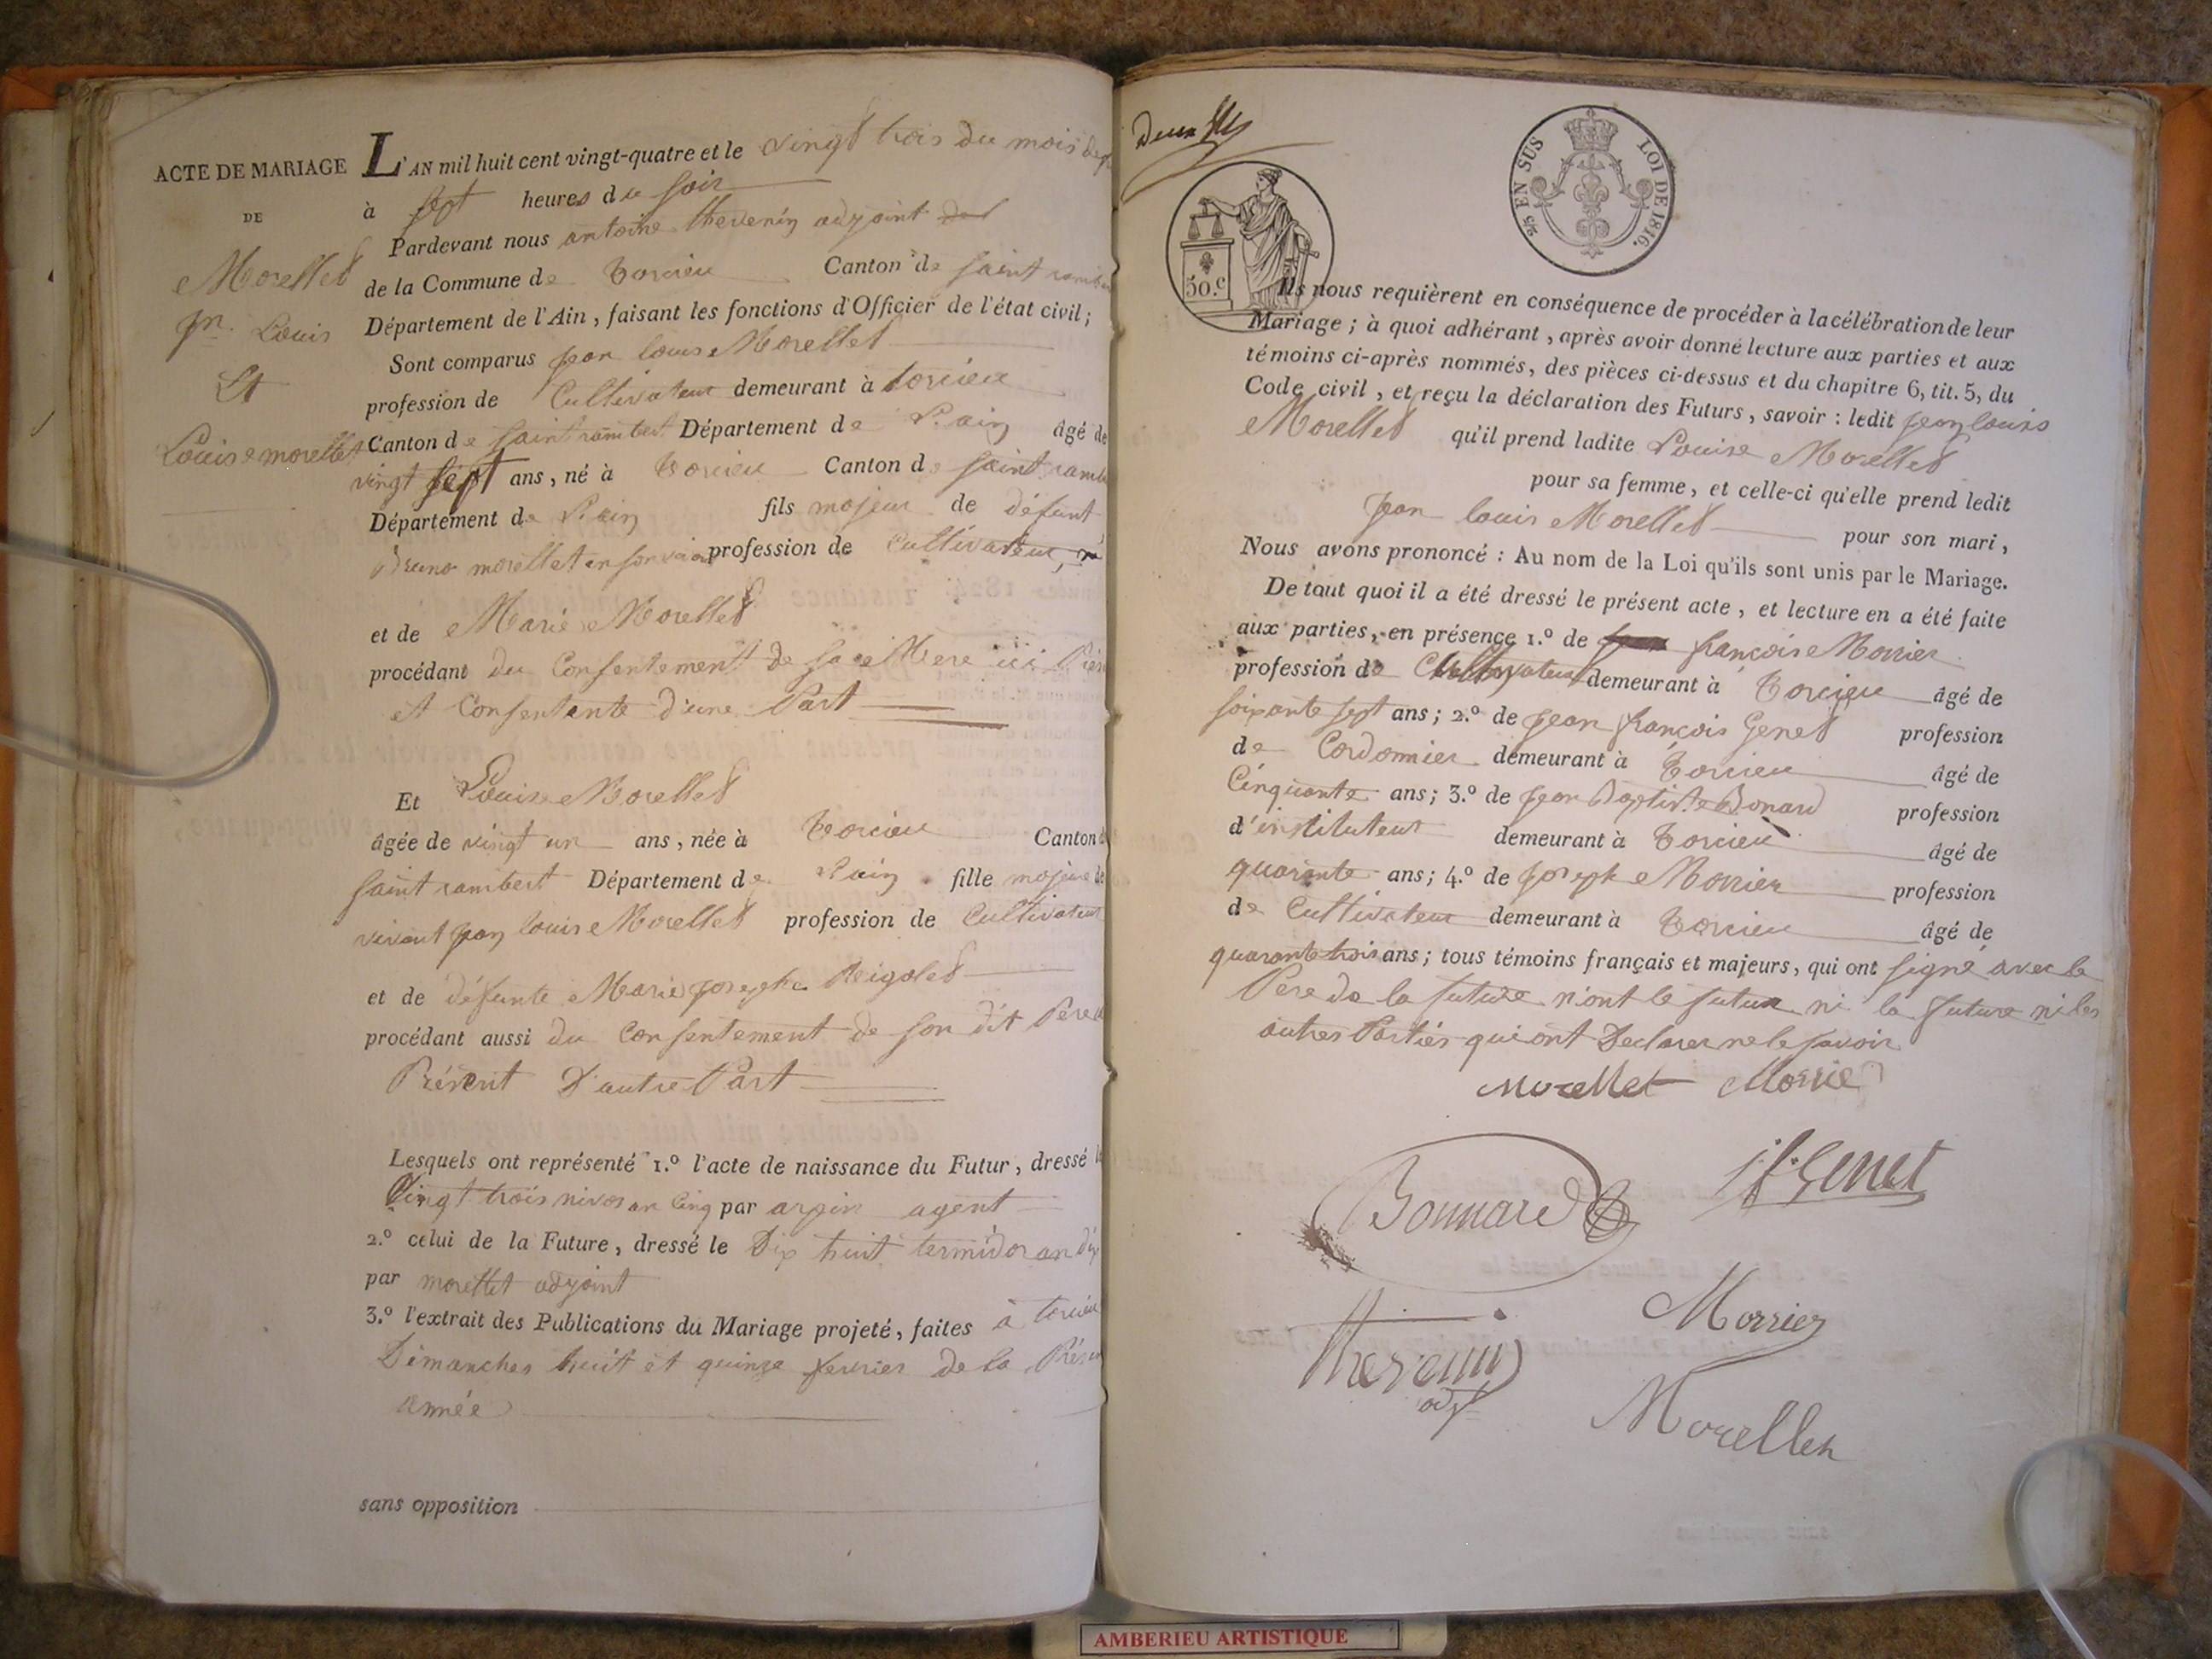 ACTE DE MARIAGE
DE
Morellet
jn. Louis
Et
Louise morellet
L'AN mil huit cent vingt-quatre et le vingt trois du mois de
à sept heures du soir
Pardevant nous antoine thevenin adjoint
de la Commune de torcieu Canton de saint rambert
Département de l'Ain, faisant les fonctions d'Officier de l'état civil;
Sont comparus jean louis Morellet
profession de Cultivateur demeurant à torcieu
Canton de saint rambert Département de l'ain âgé de
vingt sept ans, né à torcieu Canton de saint ramb
Département de l'ain fils majeur de défunt
Bruno morellet en son vivant profession de Cultivateur
et de Marie Morellet
procédant du Consentement de sa Mere ici Pres
et Consentante d'une Part
Et Louise Morellet
âgée de vingt un ans, née à torcieu Canton d
saint rambert Département de l'ain fille majeure de
vivant jean louis Morellet profession de Cultivateur
et de défunte Marie josephe Reigolet
procédant aussi du Consentement de son dit Pere
Présent D'autre Part
Lesquels ont représenté 1.º l'acte de naissance du Futur, dressé l
Vingt trois nivos an Cinq par arpin agent
2.º celui de la Future, dressé le Dix huit termidor an dix
par morellet adjoint
3.º l'extrait des Publications du Mariage projeté, faites à torcieu
Dimanches huit et quinze fevrier de la Prés
année
sans opposition
Deux
30.c
25 EN SUS LOI DE 1816.
Ils nous requièrent en conséquence de procéder à la célébration de leur
Mariage; à quoi adhérant, après avoir donné lecture aux parties et aux
témoins ci-après nommés, des pièces ci-dessus et du chapitre 6, tit. 5, du
Code civil, et reçu la déclaration des Futurs, savoir : ledit jean louis
Morellet qu'il prend ladite Louise Morellet
pour sa femme, et celle-ci qu'elle prend ledit
jean louis Morellet pour son mari,
Nous avons prononcé : Au nom de la Loi qu'ils sont unis par le Mariage.
De tout quoi il a été dressé le présent acte, et lecture en a été faite
aux parties, en présence 1.º de françois Morrier
profession de Cultivateur demeurant à torcieu âgé de
soixante sept ans; 2.º de jean françois Genet profession
de Cordonnier demeurant à torcieu âgé de
Cinquante ans; 3.º de jean Baptiste Bonard profession
d'instituteur demeurant à torcieu âgé de
quarante ans; 4.º de joseph Morrier profession
de Cultivateur demeurant à torcieu âgé de
quarante trois ans; tous témoins français et majeurs, qui ont signé avec le
Pere de la future n'ont le futur ni la future ni les
autres Parties qui ont Declarer ne le savoir
Morellet Morrie
Bonnard jf Genet
Morrier
thevenin
adj
Morellet
AMBERIEU ARTISTIQUE